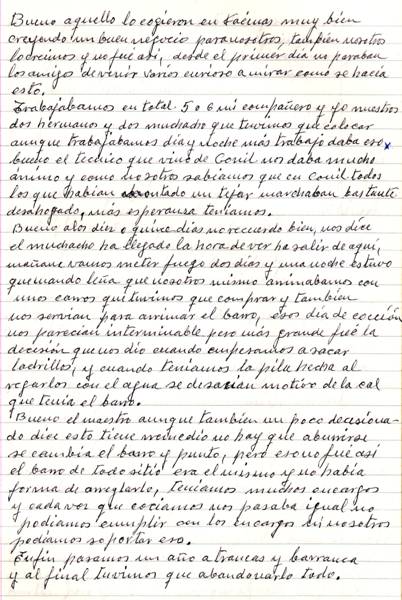 Bueno aquello lo cogieron en Facinas muy bien
creyendo un buen negocio para nosotros, tambien nosotros
lo creimos y no fué asi, desde el primer dia no paraban
los amigos de venir varios curioso a mirar como se hacia
esto,
Trabajabamos en total 5 o 6 mi compañero y yo nuestros
dos hermanos y dos muchacho que tuvimos que colocar
aunque trabajabamos dia y noche más trabajo daba eso x
bueno el tecnico que vino de Conil nos daba mucho
ánimo y como nosotros sabiamos que en Conil todos
los que habian montado un tejar marchaban bastante
desahogado, más esperanza teniamos.
Bueno a los diez o quince dias no recuerdo bien, nos dice
el muchacho ha llegado la hora de ver ha salir de aqui,
mañana vamos meter fuego dos dias y una noche estuvo
quemando leña que nosotros mismo arrimabamos con
unos carros que tuvimos que comprar y tambien
nos servian para arrimar el barro, esos dia de cocción
nos parecian interminable pero más grande fué la
decisión que nos dio cuando empezamos a sacar
ladrillos, y cuando teniamos la pila hecha al
regarlos con el agua se desacian motivo de la cal
que tenia el barro.
Bueno el maestro aunque tambien un poco decisiona-
do dice esto tiene remedio no hay que aburrirse
se cambia el barro y punto, pero eso no fue asi
el barro de todo sitio era el mismo y no habia
forma de arreglarlo, teniamos muchos encargos
y cada vez que cociamos nos pasaba igual no
podiamos cumplir con los encargos ni nosotros
podiamos soportar eso.
Enfin pasamos un año a trancas y barranca
y al final tuvimos que abandonarlo todo.